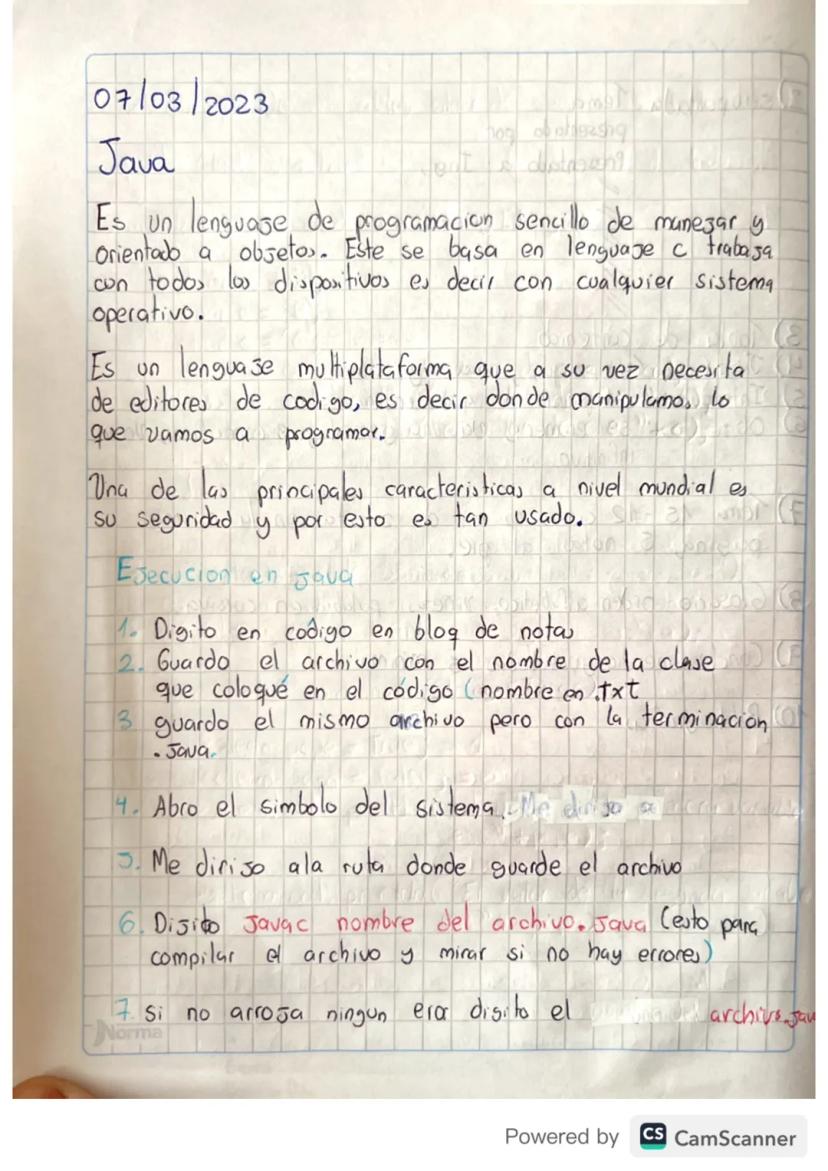 07/03/2023
Java
Es un lenguaje de programacion sencillo de manejar y
orientado a objetos. Este se basa en lenguaje c trabaja
con todos los dispositivos es decir con cualquier sistema
operativo.
Es un lenguaje multiplataforma que a su vez necesita
de editores de codigo, es decir donde manipulamos lo
que vamos a programar.
Una de las principales caracteristicas a nivel mundial es
su seguridad y por esto es tan usado.
Ejecucion en java
1. Digito en codigo en bloq de notas
2. Guardo el archivo con el nombre de la clase
que coloqué en el código (nombre en .txt
3 guardo el mismo archivo pero con la terminacion
.Java.
4. Abro el simbolo del sistema. Me dirijo a
5. Me dirijo ala ruta donde guarde el archivo
6. Digito Javac nombre del archivo.Java (esto para
compilar el archivo y mirar si no hay errores)
7. Si no arroja ningun eror digito el archivo.jav
Norma
Powered by CS CamScanner